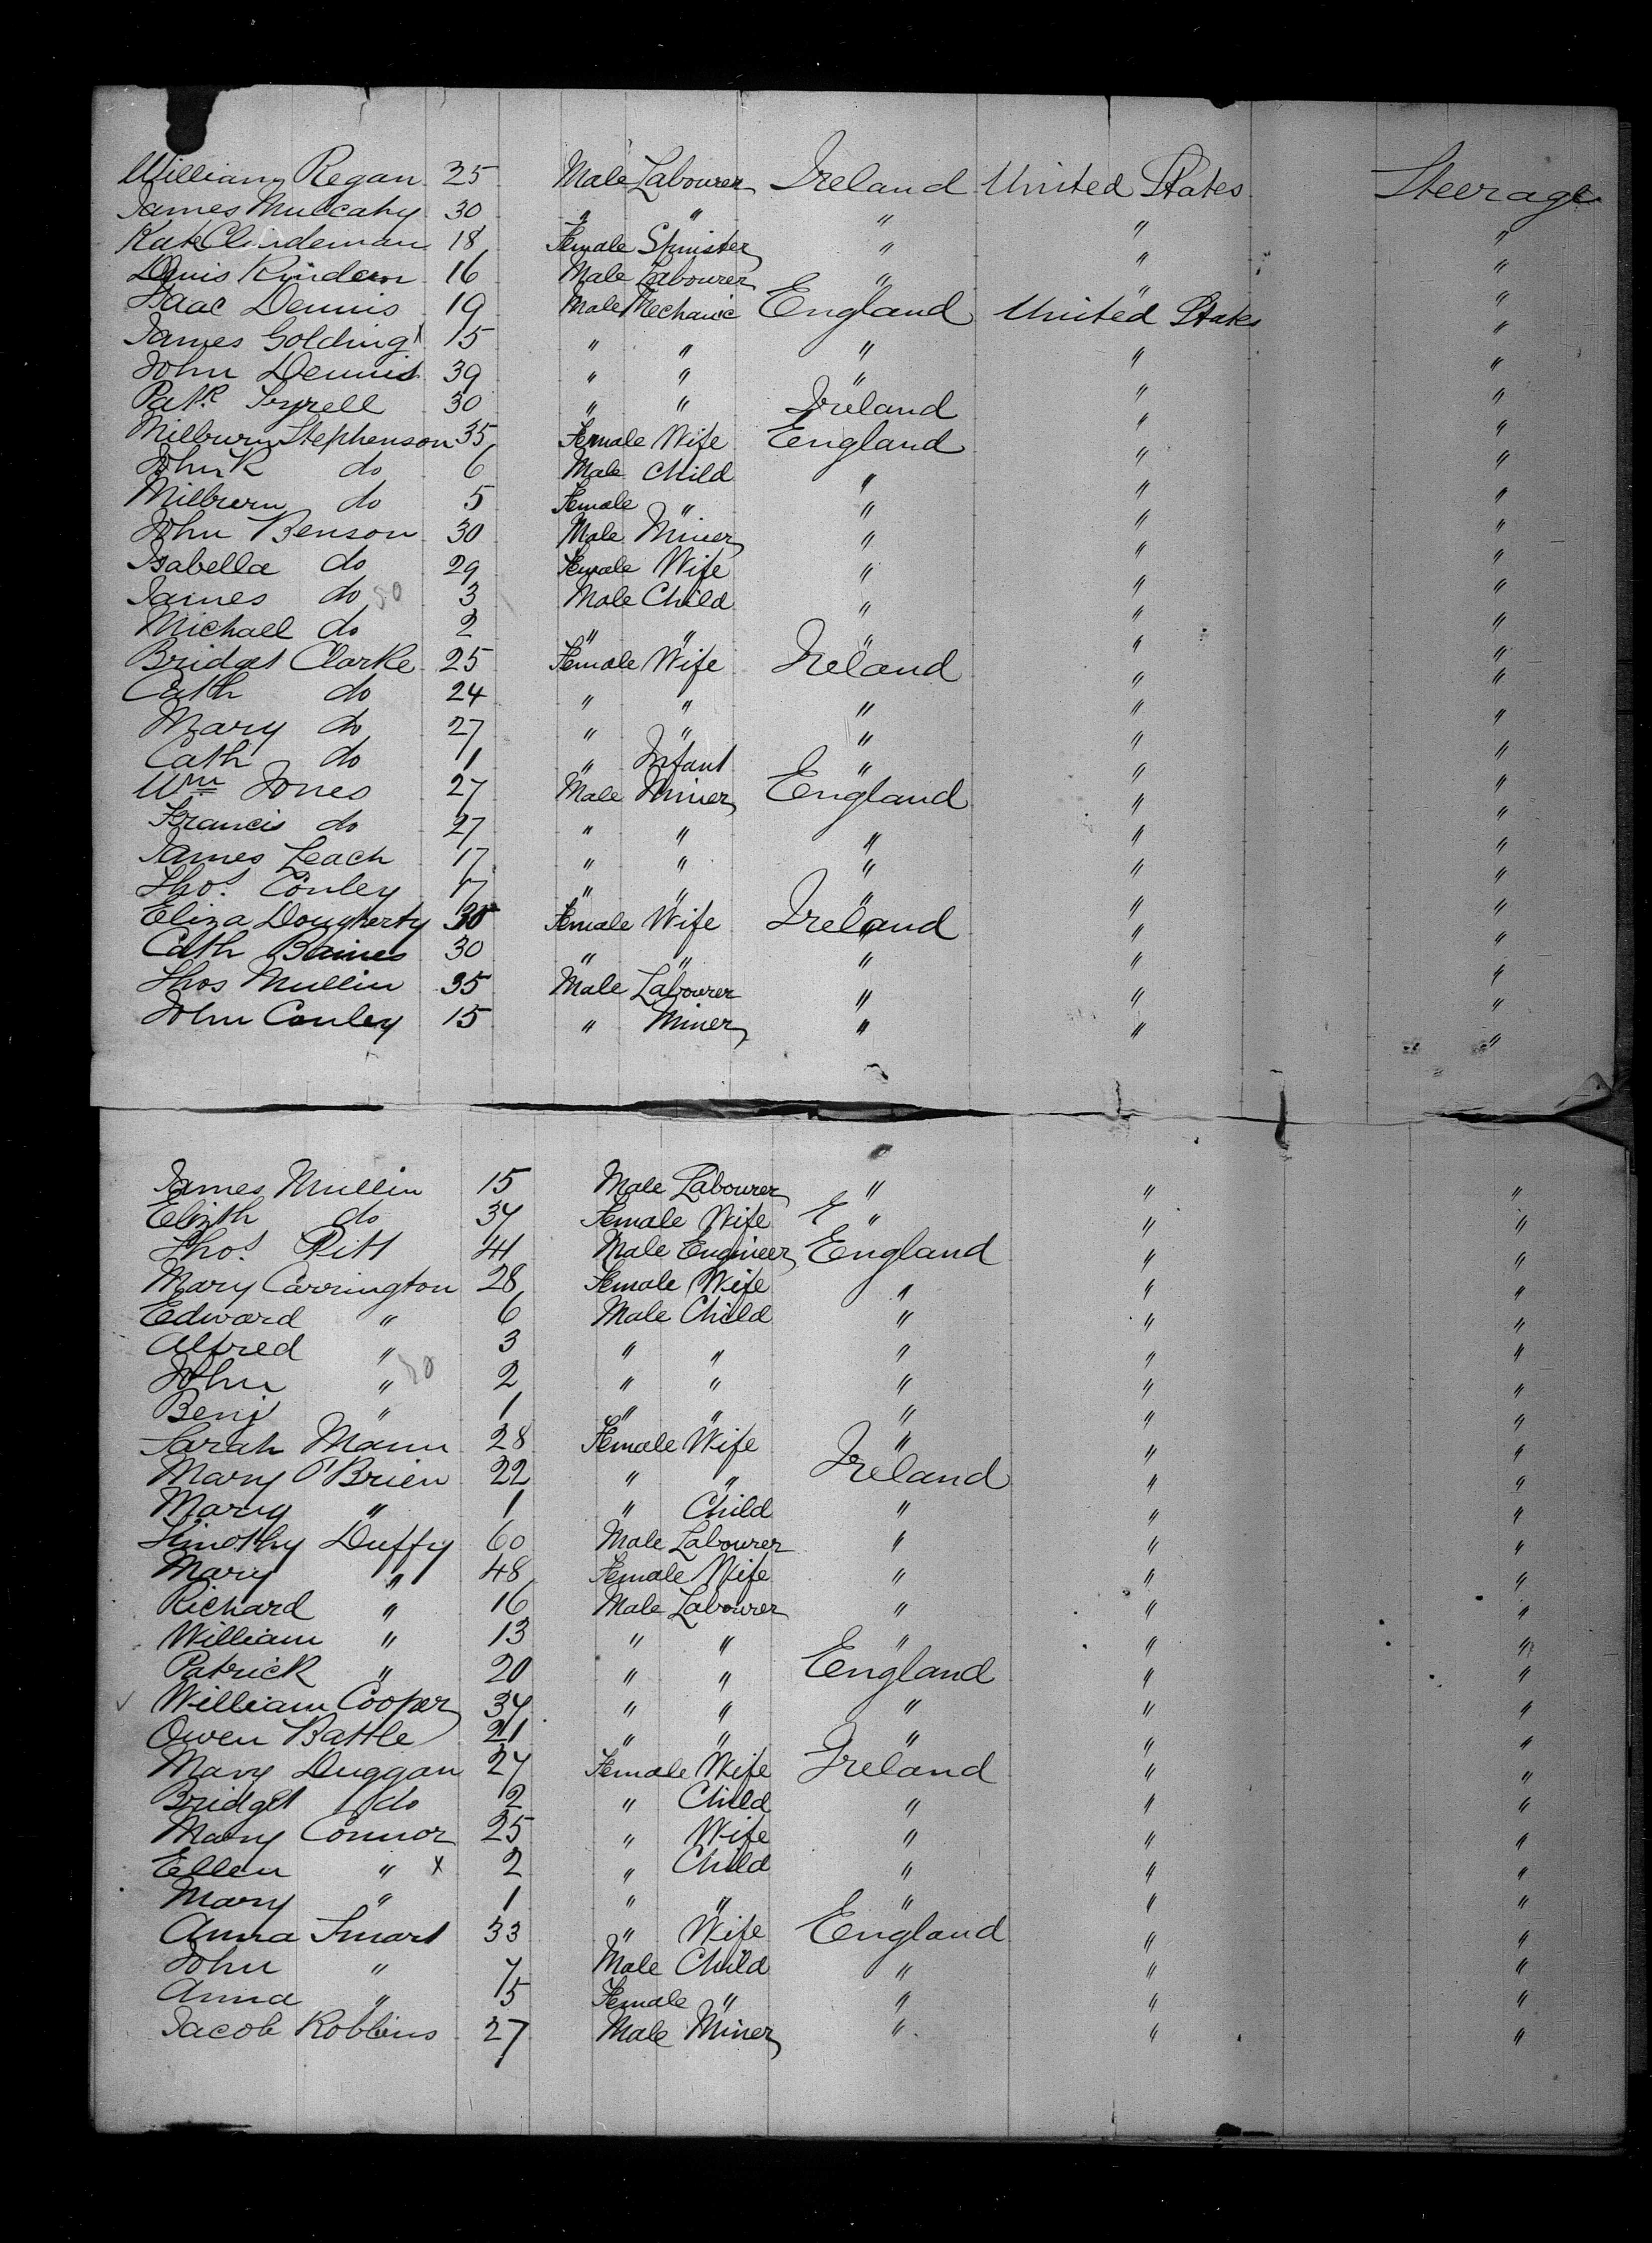 William Regan 25 Male Labourer Ireland United States Steerage
James Mulcahy 30 " " " " "
Kate Clindeman 18 Female Spinster " " "
16 Male Labourer " " "
Isaac Dennis 19 Male Mechanic England United States "
James Golding 15 " " " " "
John Dennis 39 " " " " "
Patk Tyrell 30 " " Ireland " "
Milburn Stephenson 35 Female Wife England " "
John R do 6 Male Child " " "
Milburn do 5 Female " " " "
John Benson 30 Male Miner " " "
Isabella do 29 Female Wife " " "
James do 3 Male Child " " "
Michael do 2 " " " " "
Bridget Clarke 25 Female Wife Ireland " "
Cath do 24 " " " " "
Mary do 27 " " " " "
Cath do 1 " Infant " " "
Wm Jones 27 Male Miner England " "
Francis do 27 " " " " "
James Leach 17 " " " " "
Thos Conley 17 " " " " "
Eliza Dougherty 30 Female Wife Ireland " "
Cath Baines 30 " " " " "
Thos Mullin 35 Male Labourer " " "
John Conley 15 " Miner " " "
James Mullin 15 Male Labourer " " "
Elizth do 34 Female Wife " " "
Thos Pitt 41 Male Engineer England " "
Mary Carrington 28 Female Wife " " "
Edward " 6 Male Child " " "
Alfred " 3 " " " " "
John " 2 " " " " "
Benj " 1 " " " " "
Sarah Mann 28 Female Wife " " "
Mary O'Brien 22 " " Ireland " "
Mary " 1 " Child " " "
Timothy Duffy 60 Male Labourer " " "
Mary " 48 Female Wife " " "
Richard " 16 Male Labourer " " "
William " 13 " " " " "
Patrick " 20 " " England " "
William Cooper 34 " " " " "
Owen Battle 21 " " " " "
Mary Duggan 24 Female Wife Ireland " "
Bridget do 2 " Child " " "
Mary Connor 25 " Wife " " "
Ellen " x 2 " Child " " "
Mary " 1 " " " " "
Anna Smart 33 " Wife England " "
John " 7 Male Child " " "
Anna " 5 Female " " " "
Jacob Robbins 27 Male Miner " " "